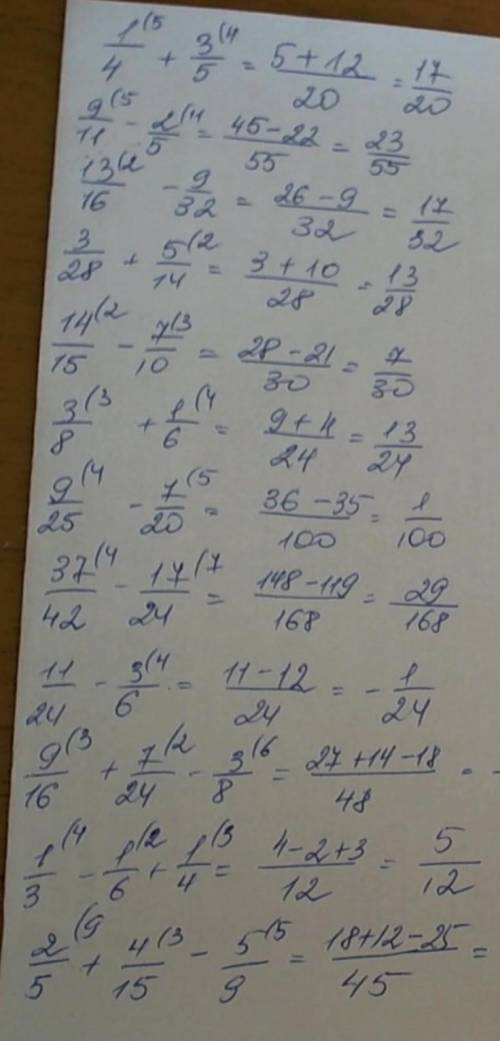 1/4(5 + 3/5(4 = (5+12)/20 = 17/20
9/11(5 - 2/5(11 = (45-22)/55 = 23/55
13/16(2 - 9/32 = (26-9)/32 = 17/32
3/28 + 5/14(2 = (3+10)/28 = 13/28
14/15(2 - 7/10(3 = (28-21)/30 = 7/30
3/8(3 + 1/6(4 = (9+4)/24 = 13/24
9/25(4 - 7/20(5 = (36-35)/100 = 1/100
37/42(4 - 17/24(7 = (148-119)/168 = 29/168
11/24 - 3/6(4 = (11-12)/24 = -1/24
9/16(3 + 7/24(2 - 3/8(6 = (27+14-18)/48 =
1/3(4 - 1/6(2 + 1/4(3 = (4-2+3)/12 = 5/12
2/5(9 + 4/15(3 - 5/9(5 = (18+12-25)/45 =